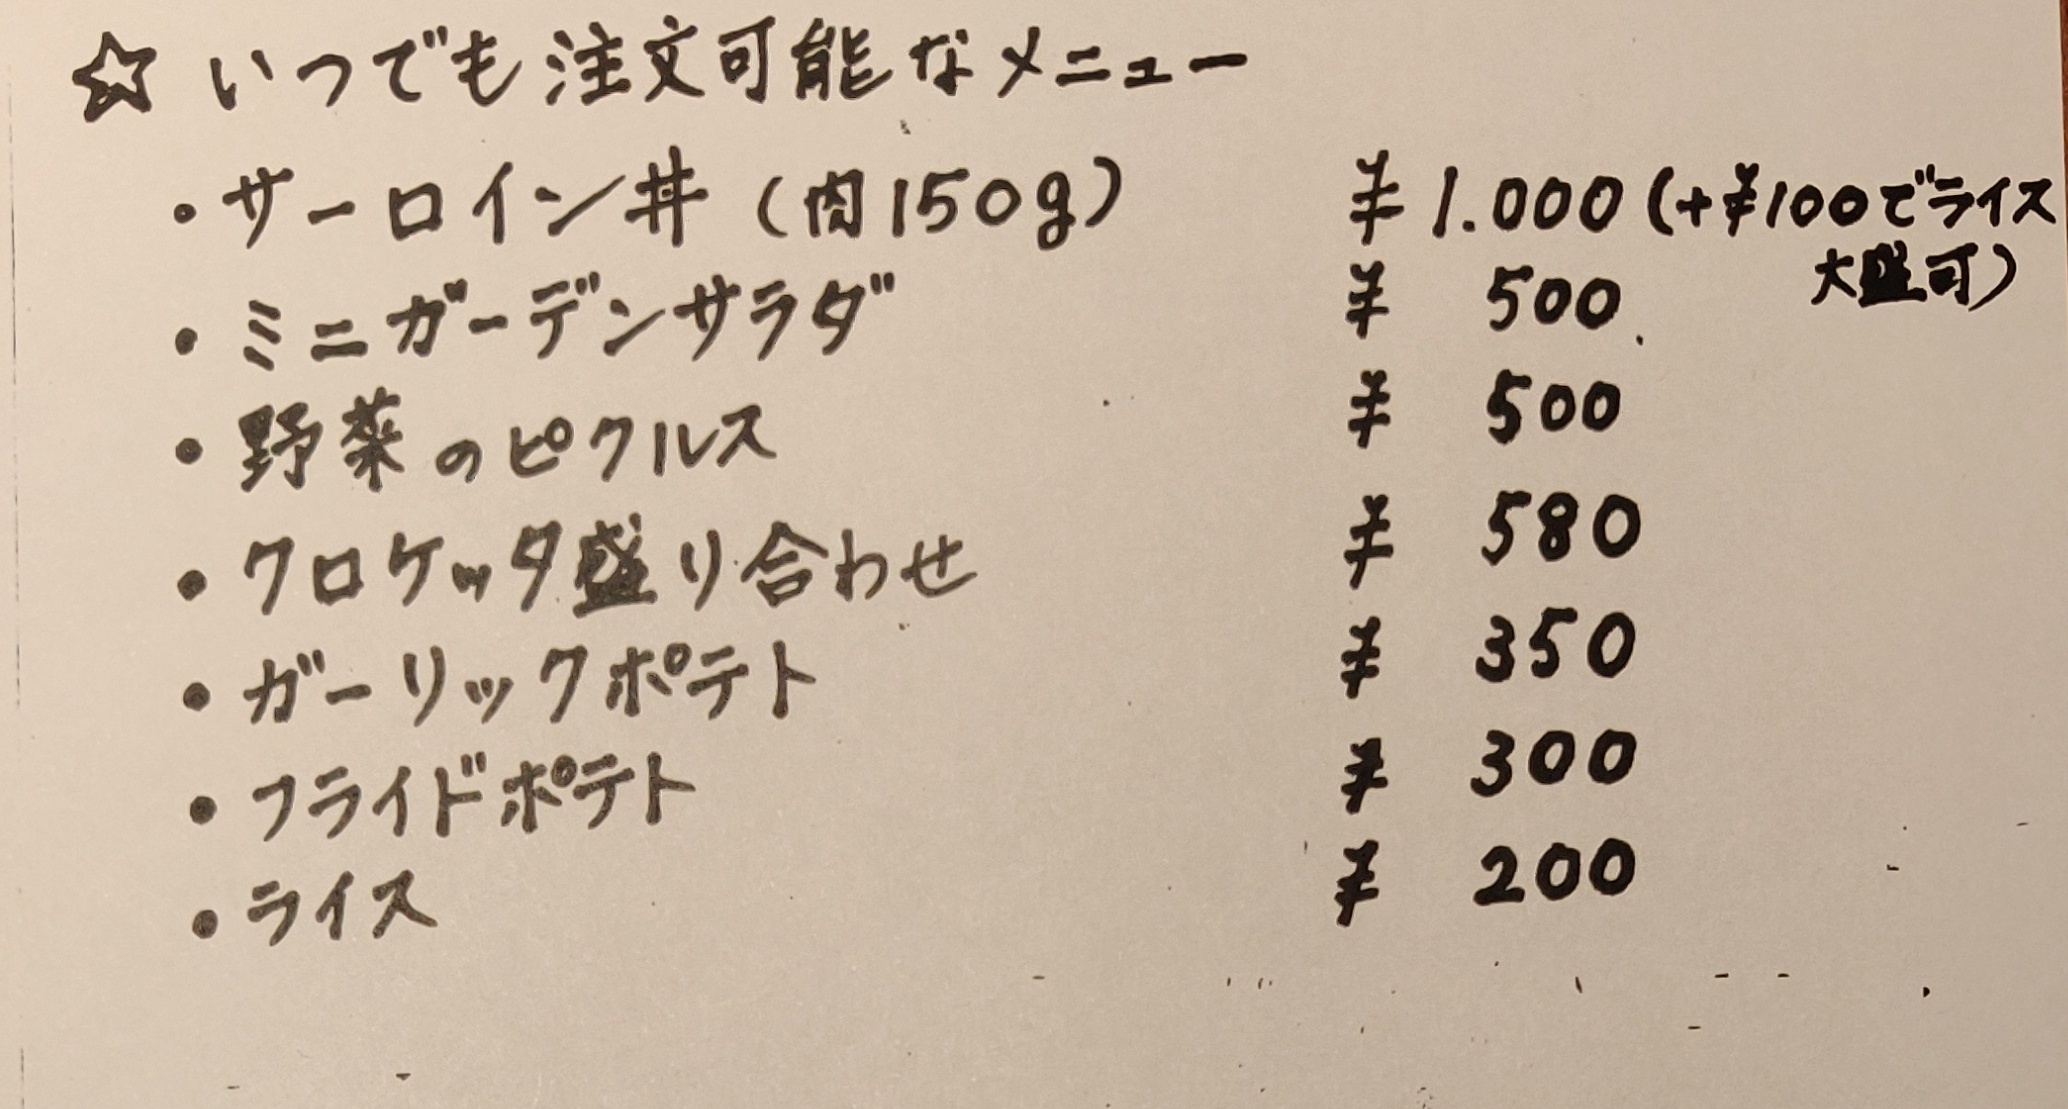 ☆ いつでも注文可能なメニュー
・サーロイン丼（肉150g） ¥1.000（+¥100でライス
大盛可）
・ミニガーデンサラダ ¥500
・野菜のピクルス ¥500
・クロケッタ盛り合わせ ¥580
・ガーリックポテト ¥350
・フライドポテト ¥300
・ライス ¥200